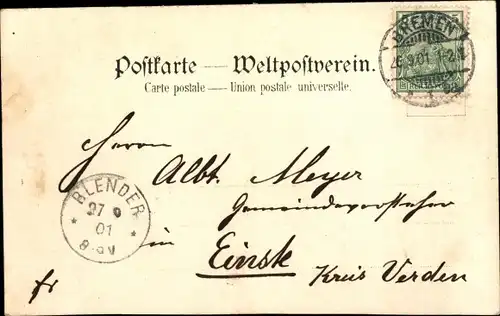 BREMEN
Postkarte — Weltpostverein.
Carte postale — Union postale universelle.
Herrn
Albt. Meyer
Gemeindevorsteher
BLENDER
01
in
Einste
Kreis Verden
fr